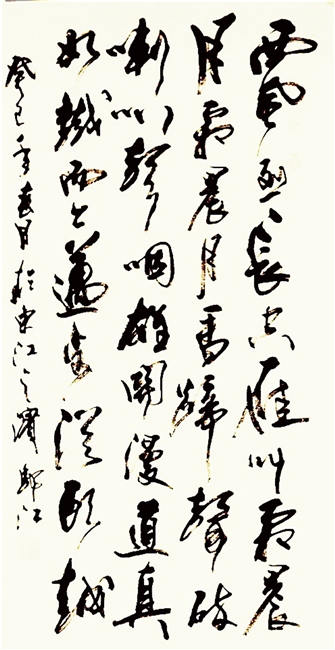 西風烈長空雁叫霜晨
月霜晨月馬蹄聲碎
喇叭聲咽雄關漫道真
如鐵而今邁步從頭越
癸巳年春月於東江之濱